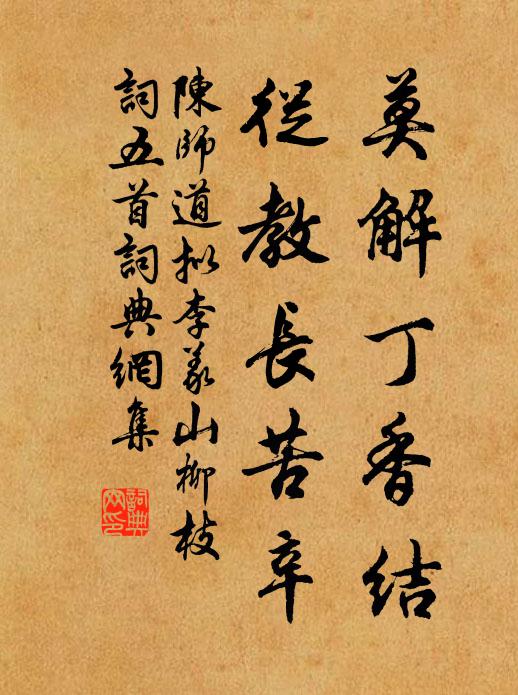 莫解丁香結
從教長苦辛
陳師道擬李義山柳枝
詞五首詞典網集
詞典
网印